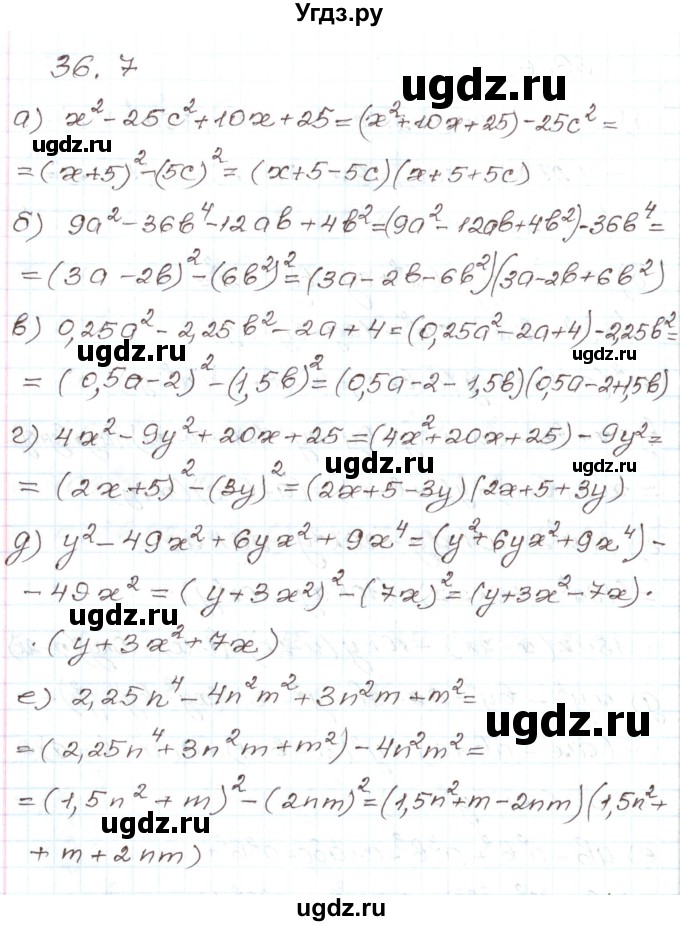 Угдз.ру
36.7
ugdz.ru
а) x² - 25c² + 10x + 25 = (x² + 10x + 25) - 25c² =
ugdz.ru
ugdz.ru
= (x+5)² - (5c)² = (x + 5 - 5c)(x + 5 + 5c)
б) 9a² - 36b⁴ - 12ab + 4b² = (9a² - 12ab + 4b²) - 36b⁴ =
= (3a - 2b)² - (6b²)² = (3a - 2b - 6b²)(3a - 2b + 6b²)
в) 0,25a² - 2,25b² - 2a + 4 = (0,25a² - 2a + 4) - 2,25b² =
ugdz.ru
ugdz.ru
= (0,5a - 2)² - (1,5b)² = (0,5a - 2 - 1,5b)(0,5a - 2 + 1,5b)
г) 4x² - 9y² + 20x + 25 = (4x² + 20x + 25) - 9y² =
ugdz.ru
ugdz.ru
= (2x + 5)² - (3y)² = (2x + 5 - 3y)(2x + 5 + 3y)
д) y² - 49x² + 6yx² + 9x⁴ = (y² + 6yx² + 9x⁴) -
- 49x² = (y + 3x²)² - (7x)² = (y + 3x² - 7x) ·
ugdz.ru
ugdz.ru
· (y + 3x² + 7x)
е) 2,25n⁴ - 4n²m² + 3n²m + m² =
ugdz.ru
= (2,25n⁴ + 3n²m + m²) - 4n²m² =
= (1,5n² + m)² - (2nm)² = (1,5n² + m - 2nm)(1,5n² +
ugdz.ru
ugdz.ru
+ m + 2nm)
ugdz.ru